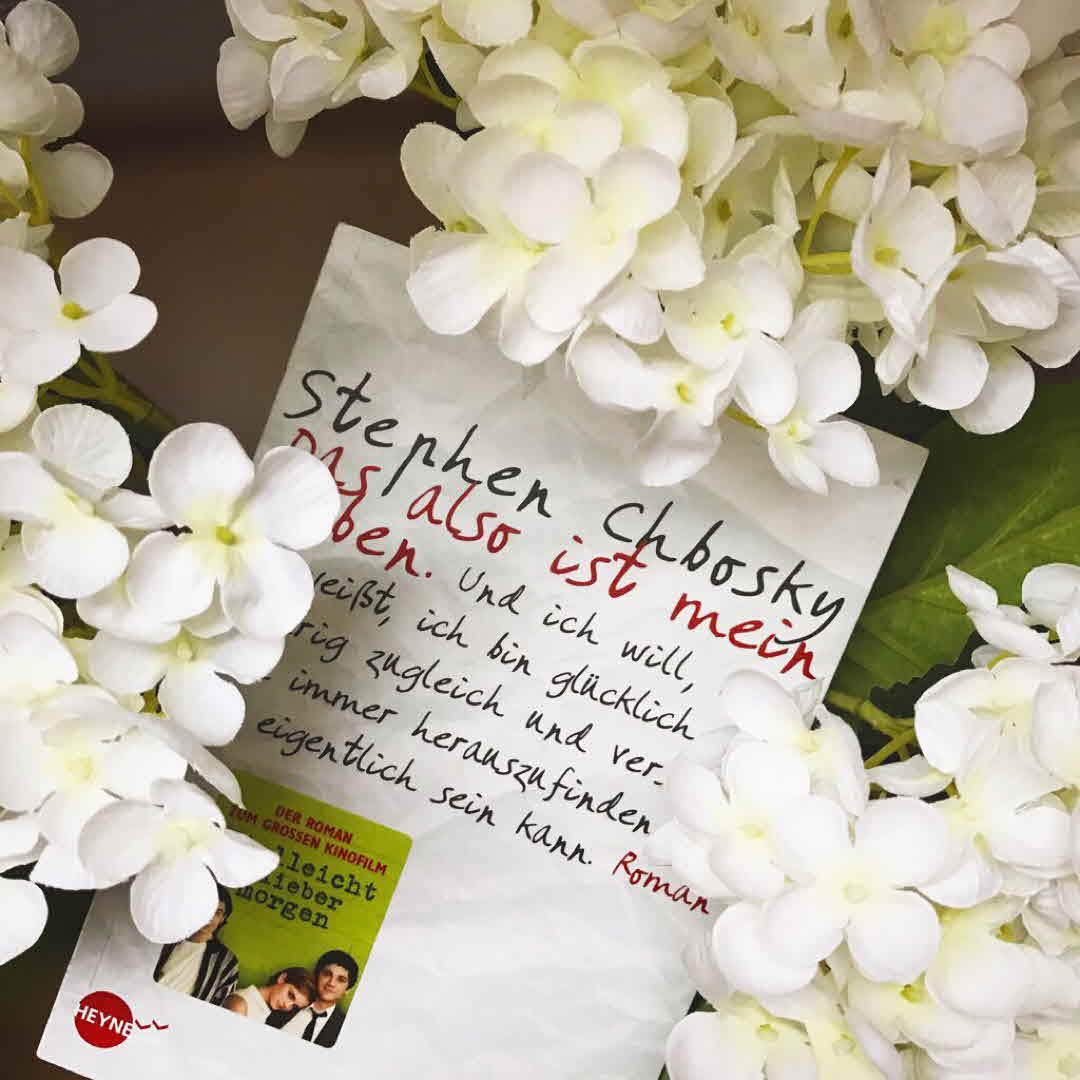 Stephen Chbosky
Das also ist mein
ben. Und ich will,
eißt, ich bin glücklich
rig zugleich und ver-
immer herauszufinden
eigentlich sein kann. Roman
DER ROMAN
ZUM GROSSEN KINOFILM
lleicht
lieber
morgen
HEYNE